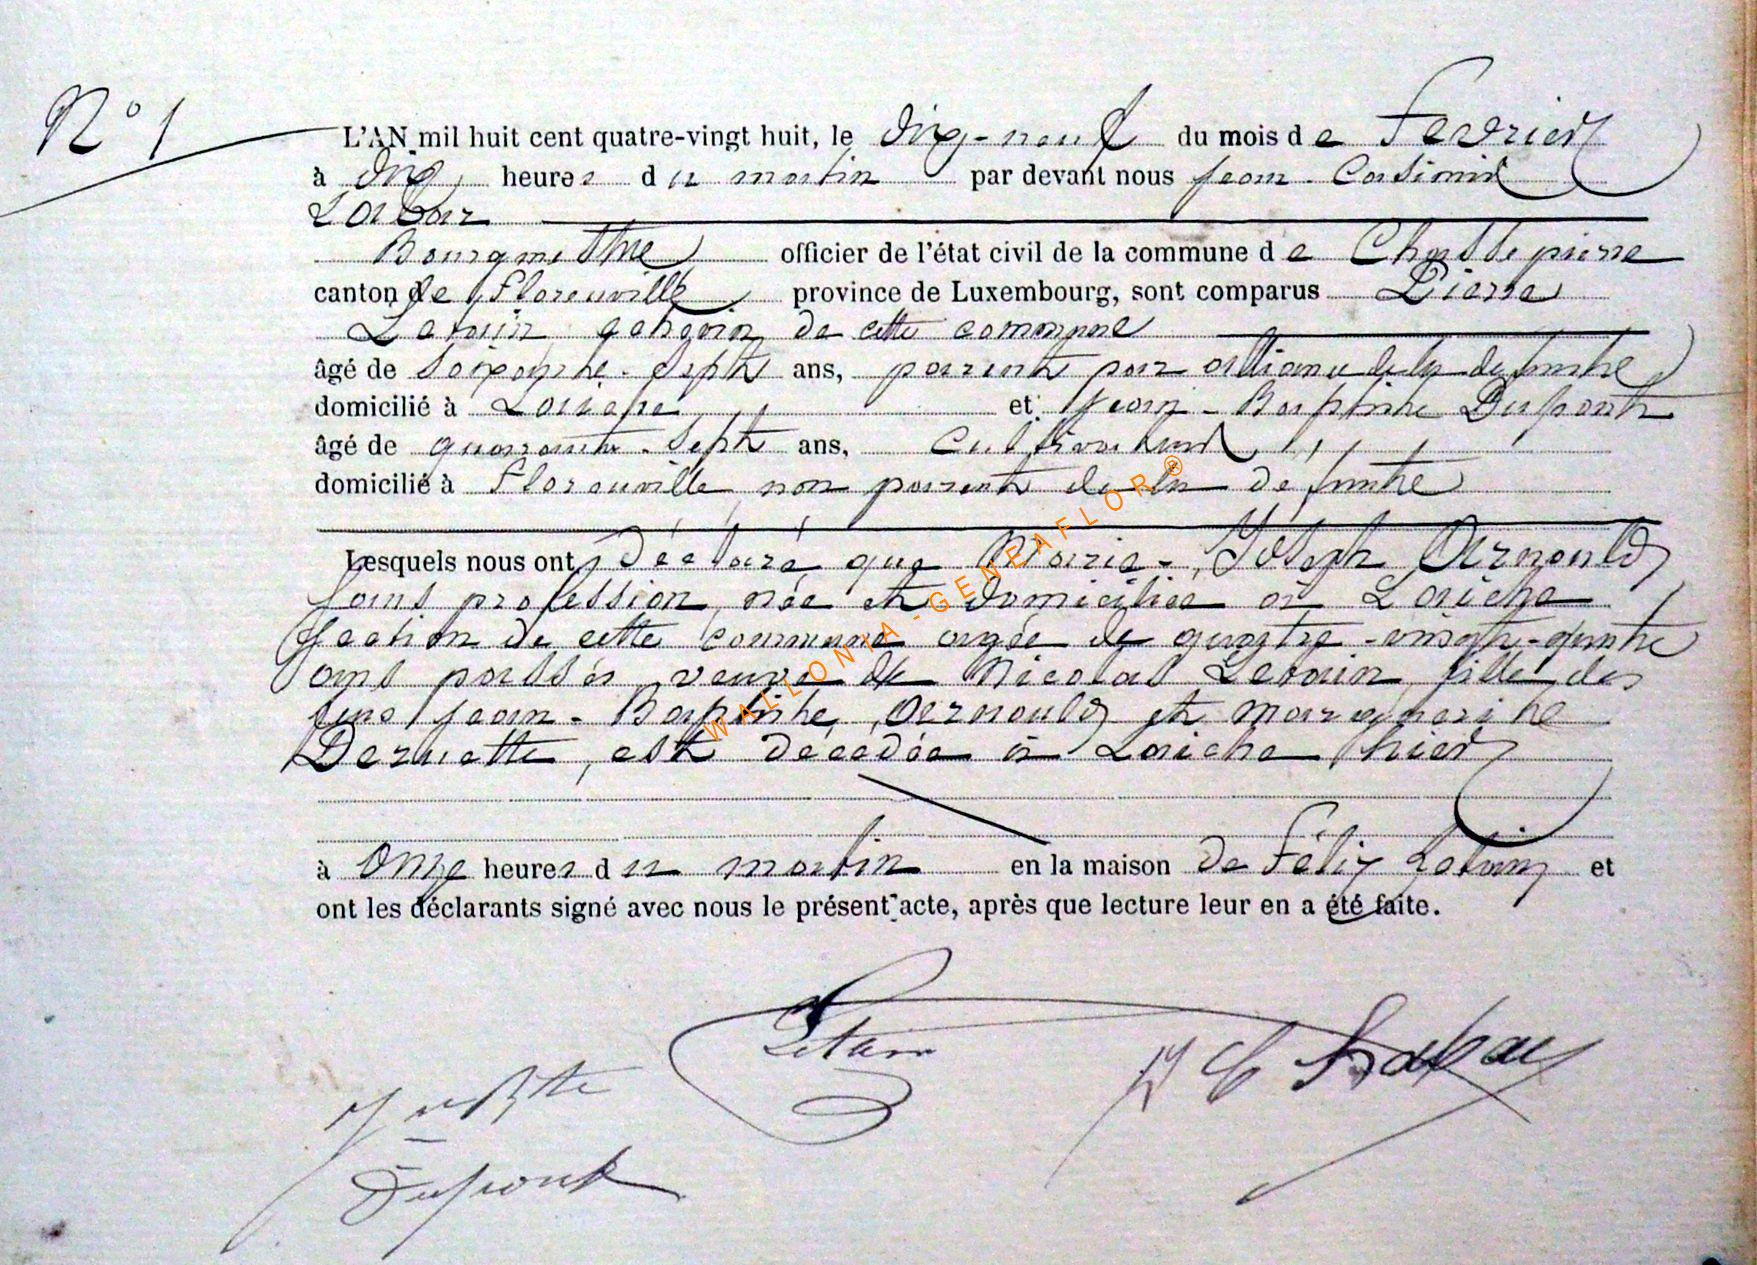 N° 1
L'AN mil huit cent quatre-vingt huit, le dix-neuf du mois de Fevrier
à dix heures du matin par devant nous Jean-Casimir
Labar
Bourgmestre officier de l'état civil de la commune de Chassepierre
canton de Florenville province de Luxembourg, sont comparus Pierre
Letain de cette commune
âgé de soixante-sept ans, parent par alliance de la defunte
domicilié à Laiche et Jean-Baptiste Dupont
âgé de quarante-sept ans, Cultivateur
domicilié à Florenville, non parent de la défunte
Lesquels nous ont déclaré que Marie-Joseph Arnould
sans profession, née et domiciliée à Laiche
section de cette commune agée de quatre-vingt-quatre
ans passés, veuve de Nicolas Letain, fille des
feus Jean-Baptiste Arnould et Marguerite
Dernette, est décédée à Laiche hier
à onze heures du matin en la maison de Félix Letain et
ont les déclarants signé avec nous le présent acte, après que lecture leur en a été faite.
WALLONIA-GENEAFLOR®
Letain
J C Labar
Jn Bte
Dupont